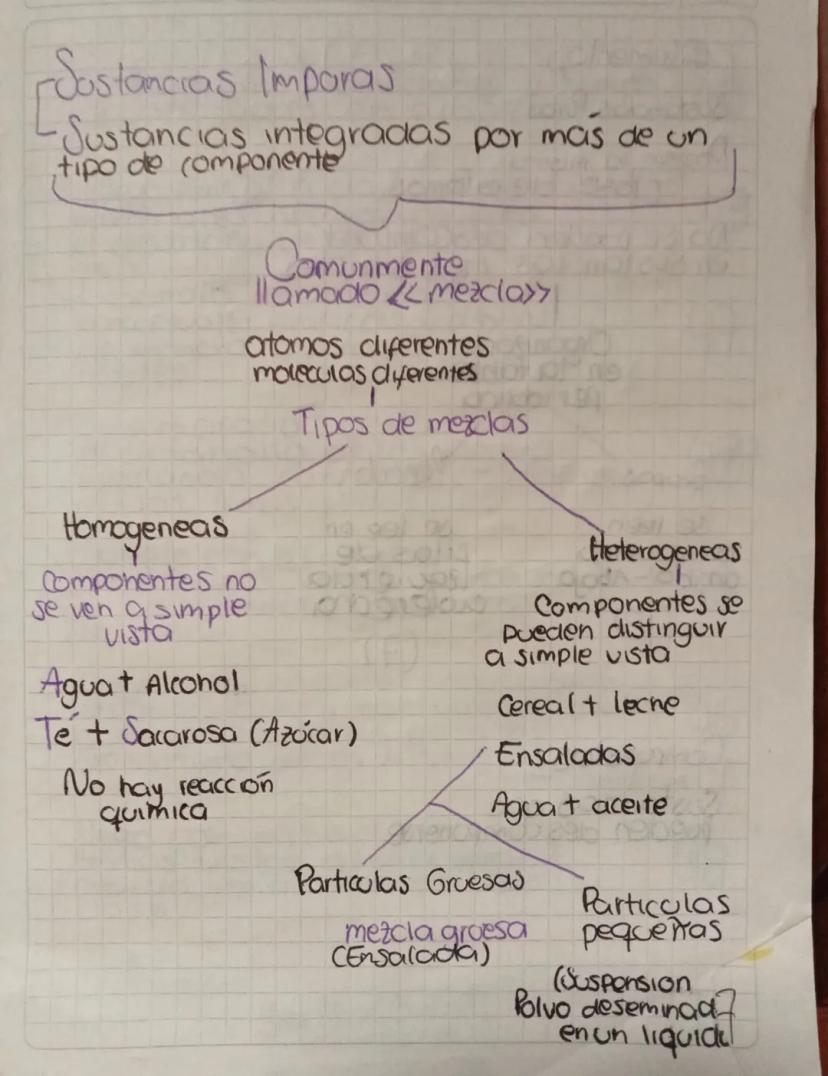 Sustancias Impuras
Sustancias integradas por más de un
tipo de componente
Comunmente
llamado << mezcla>>
atomos diferentes
moleculas diferentes
Tipos de mezclas
Homogeneas
Componentes no
se ven a simple
vista
Agua + Alcohol
Té + Sacarosa (Azúcar)
No hay reacción
química
Heterogeneas
Componentes se
pueden distinguir
a simple vista
Cereal + leche
Ensaladas
Agua + aceite
Particulas Gruesas
mezcla gruesa
(Ensalada)
Particulas
pequeñas
(Suspension
Polvo deseminad
en un liquid